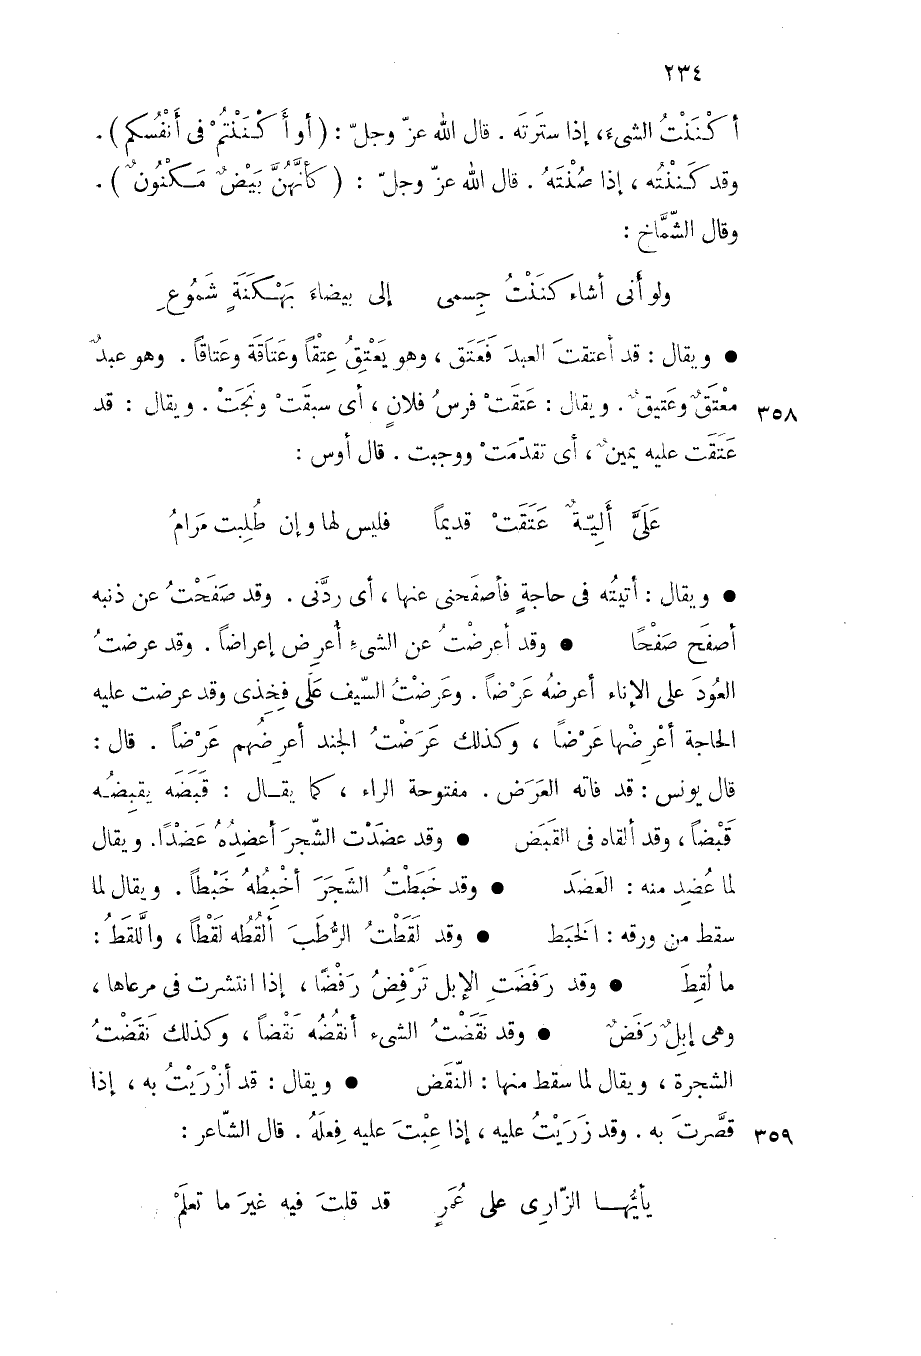 ٢٣٤
أكْنَنْتُ الشىءَ، إذا سترتَه . قال الله عزّ وجلّ : ( أو أَكْنَنْتُمْ فى أَنْفُسكم ) .
وقد كَنَنْتُه ، إذا صُنْتَهُ . قال الله عزّ وجلّ : ( كأنَّهُنَّ بَيْضٌ مَكْنُون ) .
وقال الشَّمَّاخ :
ولو أَنى أشاء كنَنْتُ جِسمى إلى بيضاءَ بَهْكَنَةٍ شَمُوعِ
● ويقال : قد أعتقتَ العبدَ فَعَتَق ، وهو يَعْتِقُ عِتْقاً وعَتَاقَة وعَتاقاً . وهو عبدٌ
٣٥٨ معْتَقٌ وعَتيقٌ . ويقال : عَتَقَتْ فرسُ فلانٍ ، أى سبقَتْ ونَجَتْ . ويقال : قد
عَتَقَت عليه يمينٌ ، أى تقدّمَتْ ووجبت . قال أوس :
عَلَىَّ أَلِيّةٌ عَتَقَتْ قديماً فليس لها وإن طُلِبت مَرامُ
● ويقال : أتيتُه فى حاجةٍ فأصفَحنى عنها ، أى ردَّنى . وقد صفَحْتُ عن ذنبه
أصفَح صَفْحًا ● وقد أعرضْتُ عن الشىءِ أُعرِض إعراضاً . وقد عرضتُ
العُودَ على الإناء أعرضُه عَرْضاً . وعَرضْتُ السّيف عَلَى فَخِذى وقد عرضت عليه
الحاجة أعْرِضُها عَرْضاً ، وكذلك عَرَضْتُ الجند أعرِضُهم عَرْضاً . قال :
قال يونس : قد فاته العَرَض . مفتوحة الراء ، كما يقال : قَبَضَه يقبِضُه
قَبْضاً ، وقد ألقاه فى القَبَض ● وقد عضَدْت الشّجرَ أعضِدُهُ عَضْدًا. ويقال
لما عُضِد منه : العَضَد ● وقد خَبَطْتُ الشَجَرَ أخْبِطُهُ خَبْطاً . ويقال لما
سقط من ورقه : الخَبَط ● وقد لَقَطْتُ الرُّطَبَ ألقُطُه لَقْطاً ، واللَّقَطُ :
ما لُقِطَ ● وقد رَفَضَتِ الإبل تَرْفِضُ رَفْضًا ، إذا انتشرت فى مرعاها ،
وهى إبِلٌ رَفَضٌ ● وقد نَقَضْتُ الشىء أنقُضُه نَقْضاً ، وكذلك نَقَضْتُ
الشجرة ، ويقال لما سقط منها : النّقَض ● ويقال : قد أزْرَيْتُ به ، إذا
٣٥٩ قصَّرتَ به . وقد زَرَيْتُ عليه ، إذا عِبْتَ عليه فِعلَهُ . قال الشّاعر :
يأيُّها الزّارِى على عُمَرٍ قد قلتَ فيه غيرَ ما تعلَمْ